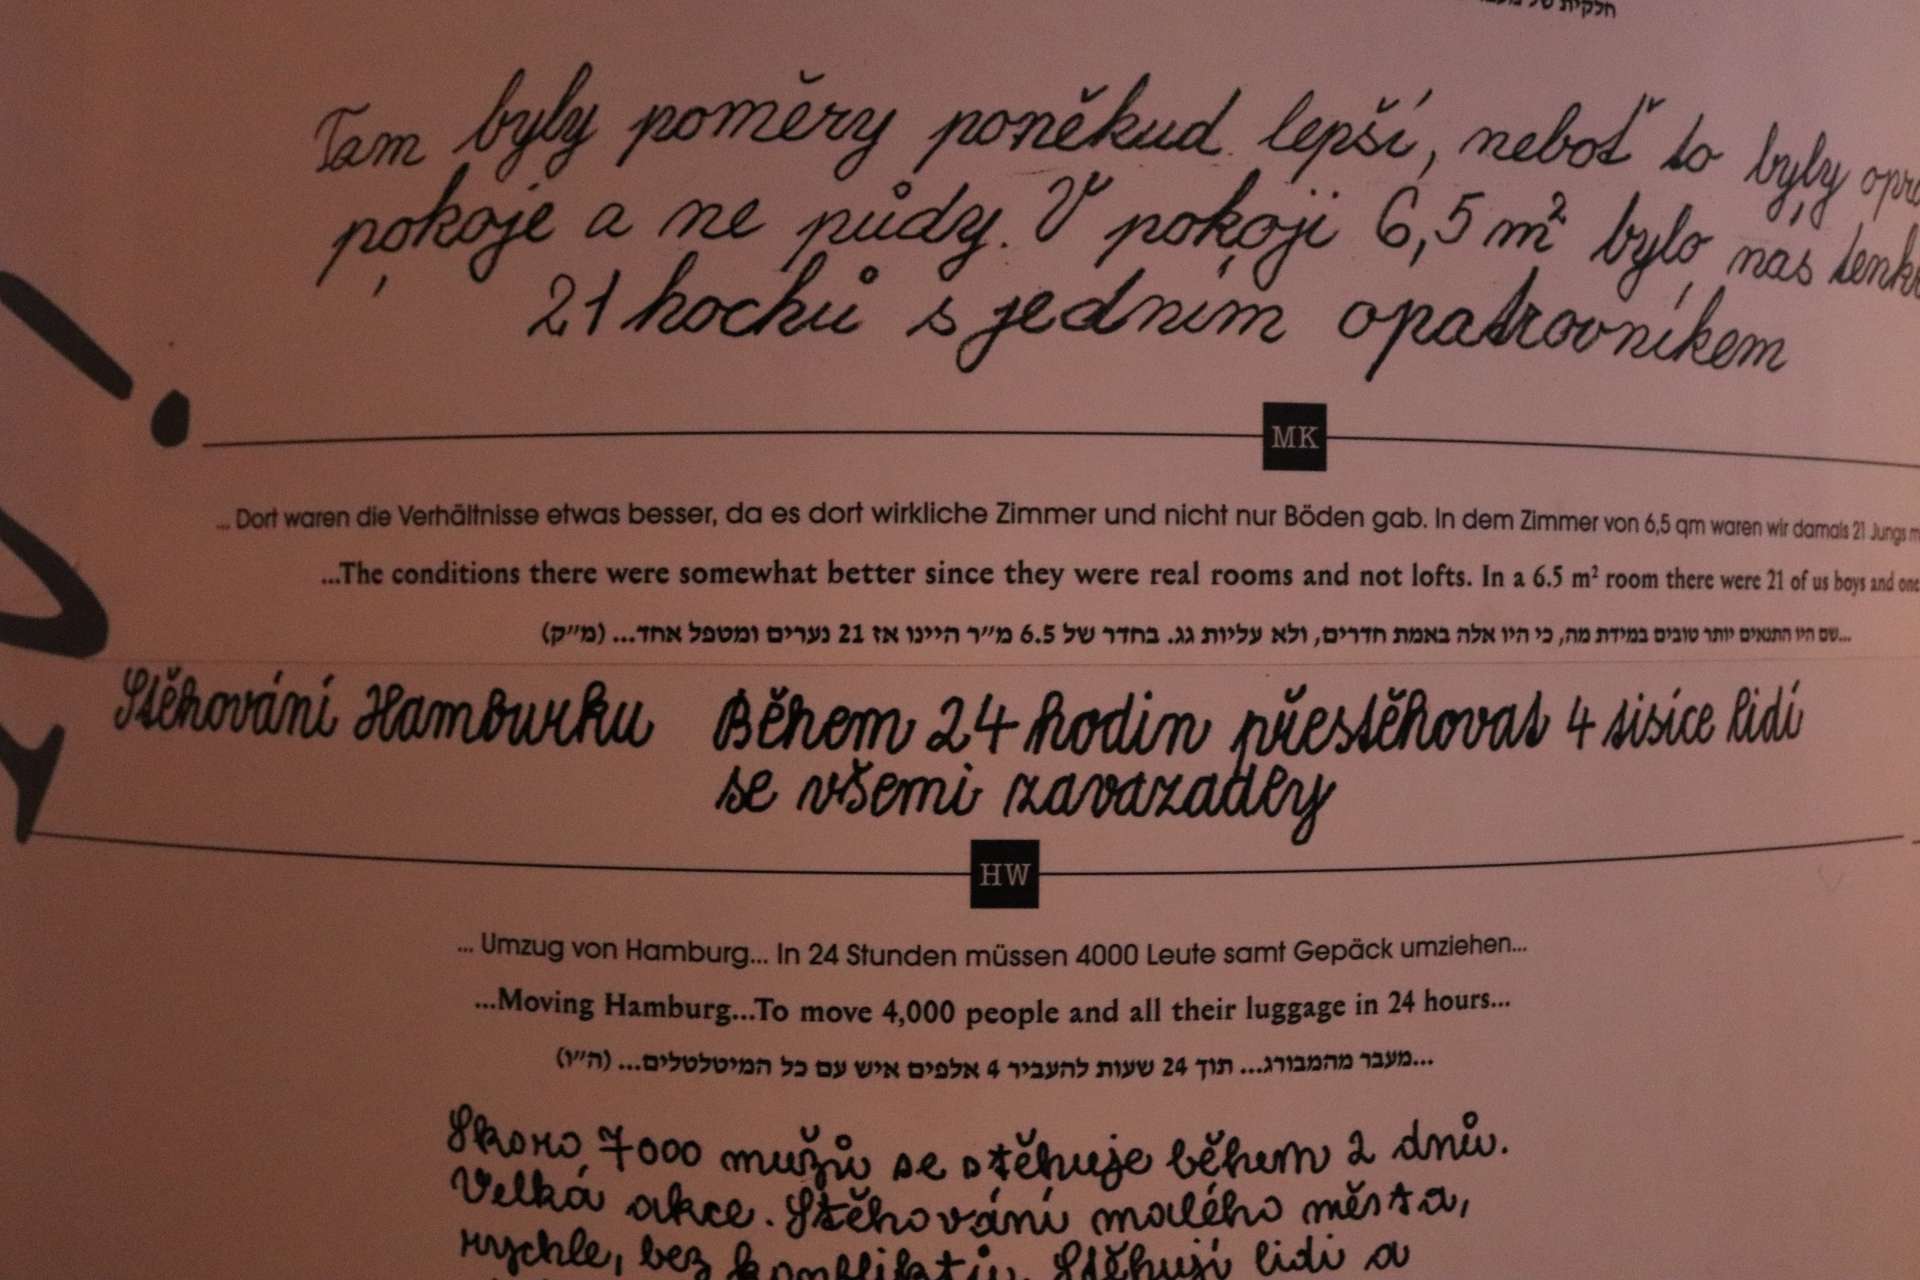 חלקית של
Tam byly poměry poněkud lepší, neboť to byly
pokoje a ne půdy. V pokoji 6,5 m² bylo nás
21 hochů s jedním opatrovníkem
MK
... Dort waren die Verhältnisse etwas besser, da es dort wirkliche Zimmer und nicht nur Böden gab. In dem Zimmer von 6,5 qm waren wir damals 21 Jungs
...The conditions there were somewhat better since they were real rooms and not lofts. In a 6.5 m² room there were 21 of us boys and one
...שם היו התנאים יותר טובים במידת מה, כי היו אלה באמת חדרים, ולא עליות גג. בחדר של 6.5 מ״ר היינו אז 21 נערים ומטפל אחד... (מ״ק)
Stěhování Hamburku Během 24 hodin přestěhovat 4 tisíce lidí
se všemi zavazadly
HW
... Umzug von Hamburg... In 24 Stunden müssen 4000 Leute samt Gepäck umziehen...
...Moving Hamburg...To move 4,000 people and all their luggage in 24 hours...
...מעבר מהמבורג... תוך 24 שעות להעביר 4 אלפים איש עם כל המיטלטלים... (ה״ו)
Skoro 7000 mužů se stěhuje během 2 dnů.
Velká akce. Stěhování malého města,
rychle, bez konfliktů. Stěhují lidi a